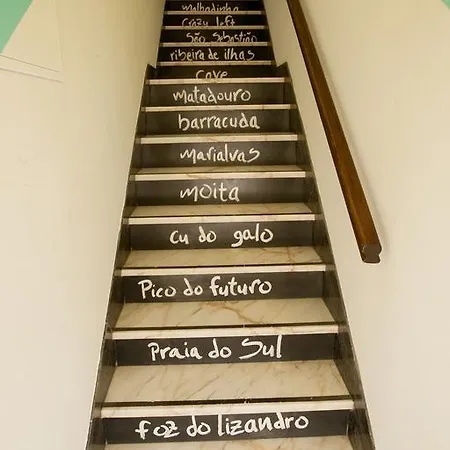 malhadinha
crazy left
São Sebastião
ribeira de ilhas
cave
matadouro
barracuda
marialvas
moita
cu do galo
Pico do futuro
Praia do Sul
foz do lizandro